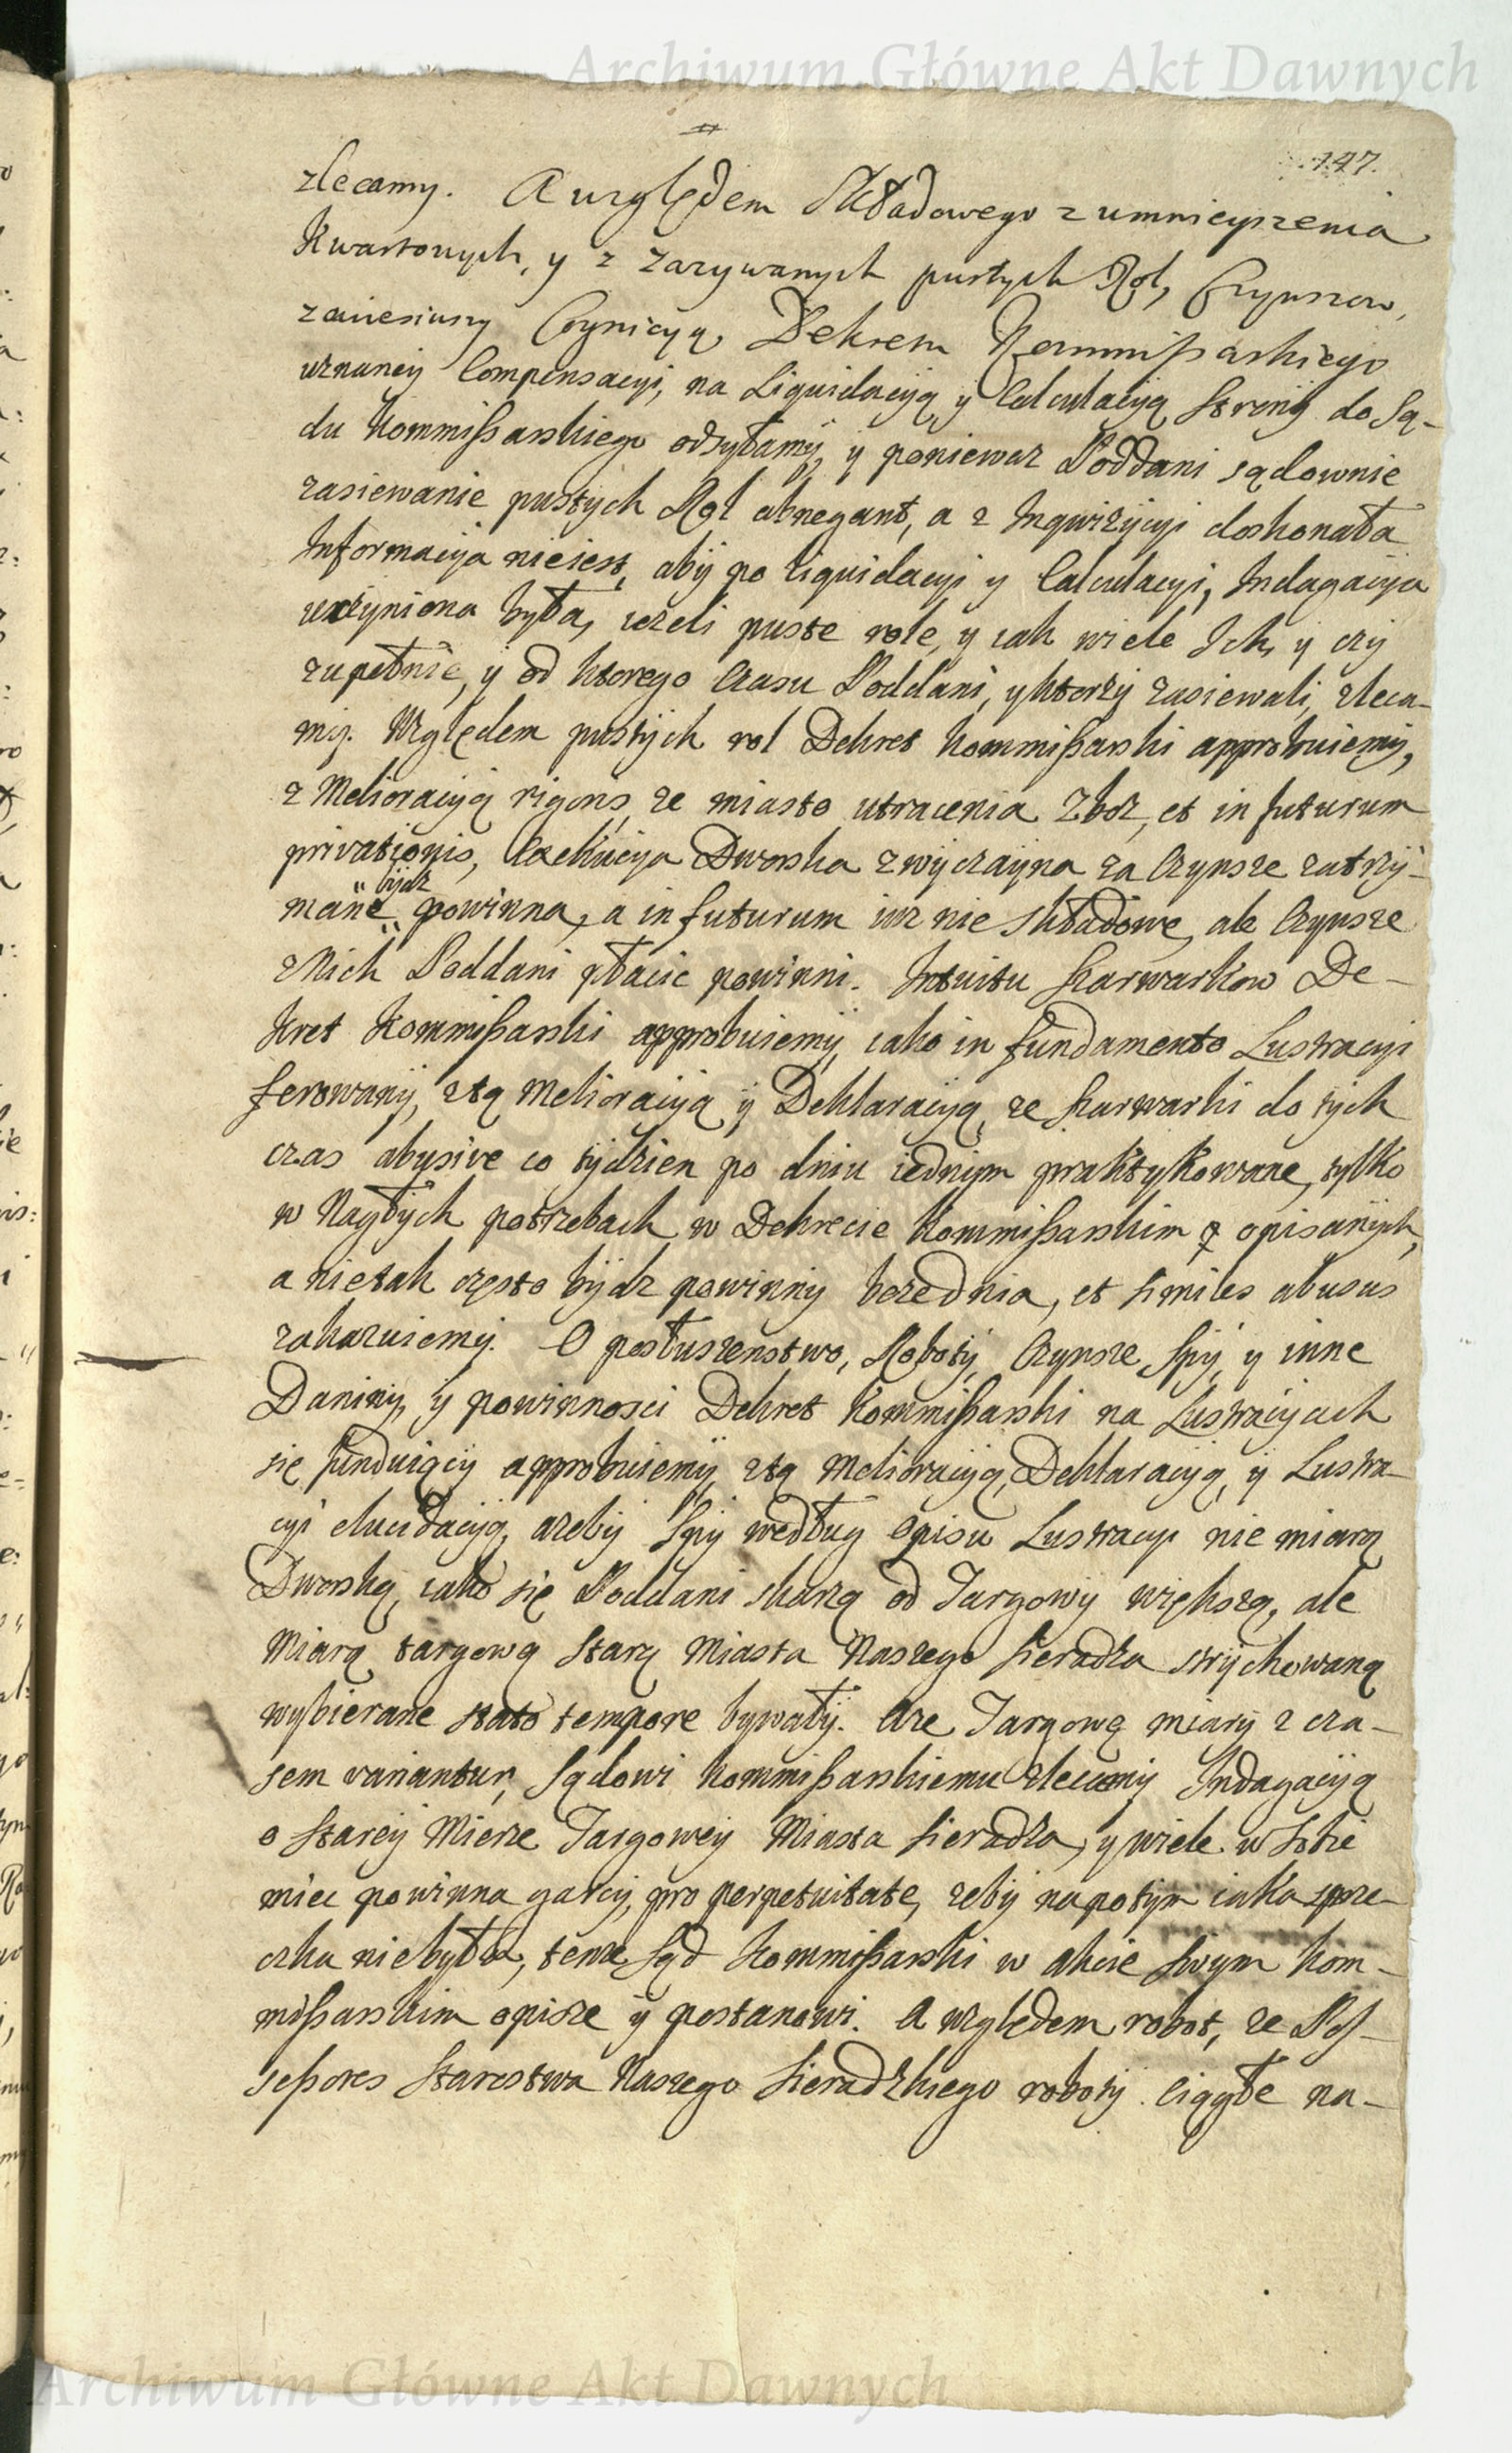 Archiwum Główne Akt Dawnych
147.
zlecamy. A względem Składowego z umnieyszenia
Kwartowych, y z zazywanych pustych Rol, Czynszow,
zawiesiwszy Dekretu Kommißarskiego
uznaney Compensacyi, na Liquidacyją y Calculacyją Strony do Są-
du Kommißarskiego odsyłamy, y poniewaz Poddani sądownie
zasiewanie pustych Rol abnegant, a z Inqwizycyi doskonała
Informacyja nieiest, aby po liquidacyi y Calculacyi, Indagacyja
uczyniona była, iezeli puste role, y iak wiele Ich, y czy
zupełnie, y od ktorego Czasu Poddani, y ktorzy zasiewali, zleca-
my. Względem pustych rol Dekret Kommißarski approbuiemy,
z Melioracyją rigoris, ze miasto utracenia Zboz, et in futurum
privationis, Exekucyja Dworska zwyczayna za Czynsze zatrzy-
mane bydz powinna, a in futurum iuz nie składowe, ale Czynsze
z Nich Poddani płacic powinni. Intuitu szarwarkow De-
kret Kommißarski approbuiemy, iako in fundamento Lustracyi
ferowany, z tą Melioracyją y Deklaracyją, ze szarwarki do tych
czas abusive co tydzien po dniu iednym praktykowane, tylko
w Nagłych potrzebach w Dekrecie Kommißarskim opisanych,
a nietak często bydz powinny, et similes abusus
zakazuiemy. O posłuszenstwo, Roboty, Czynsze, Spy, y inne
Daniny, y powinnosci Dekret Kommißarski na Lustracyach
się funduiący approbuiemy, z tą Melioracyją, Deklaracyją, y Lustra-
cyi elucidacyją, azeby Spy według Opisu Lustracyi nie miarą
Dworską, iako się Poddani skarzą od Targowy większą, ale
Miarą targową starą Miasta Naszego Sieradza strychowaną
wybierane stato tempore bywały. A ze Targowe miary z cza-
sem variantur, Sądowi Kommißarskiemu zlecamy Indagacyją
o starey Mierze Targowey Miasta Sieradza, y wiele w Sobie
miec powinna garcy, pro perpetuitate, zeby napotym iaka sprze-
czka niebyła, tenze Sąd Kommißarski w akcie Swym Kom-
mißarskim opisze y postanowi. A względem robot, ze Pos-
seßores Starostwa Naszego Sieradzkiego roboty ciągłe na-
Archiwum Główne Akt Dawnych